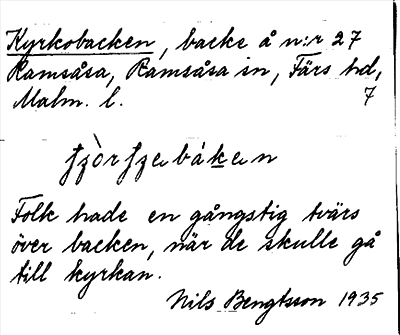 Kyrkobacken, backe å n:r 27
Ramsåsa, Ramsåsa sn, Färs hd,
Malm. l. 7
Folk hade en gångstig tvärs
över backen, när de skulle gå
till kyrkan.
Nils Bengtsson 1935